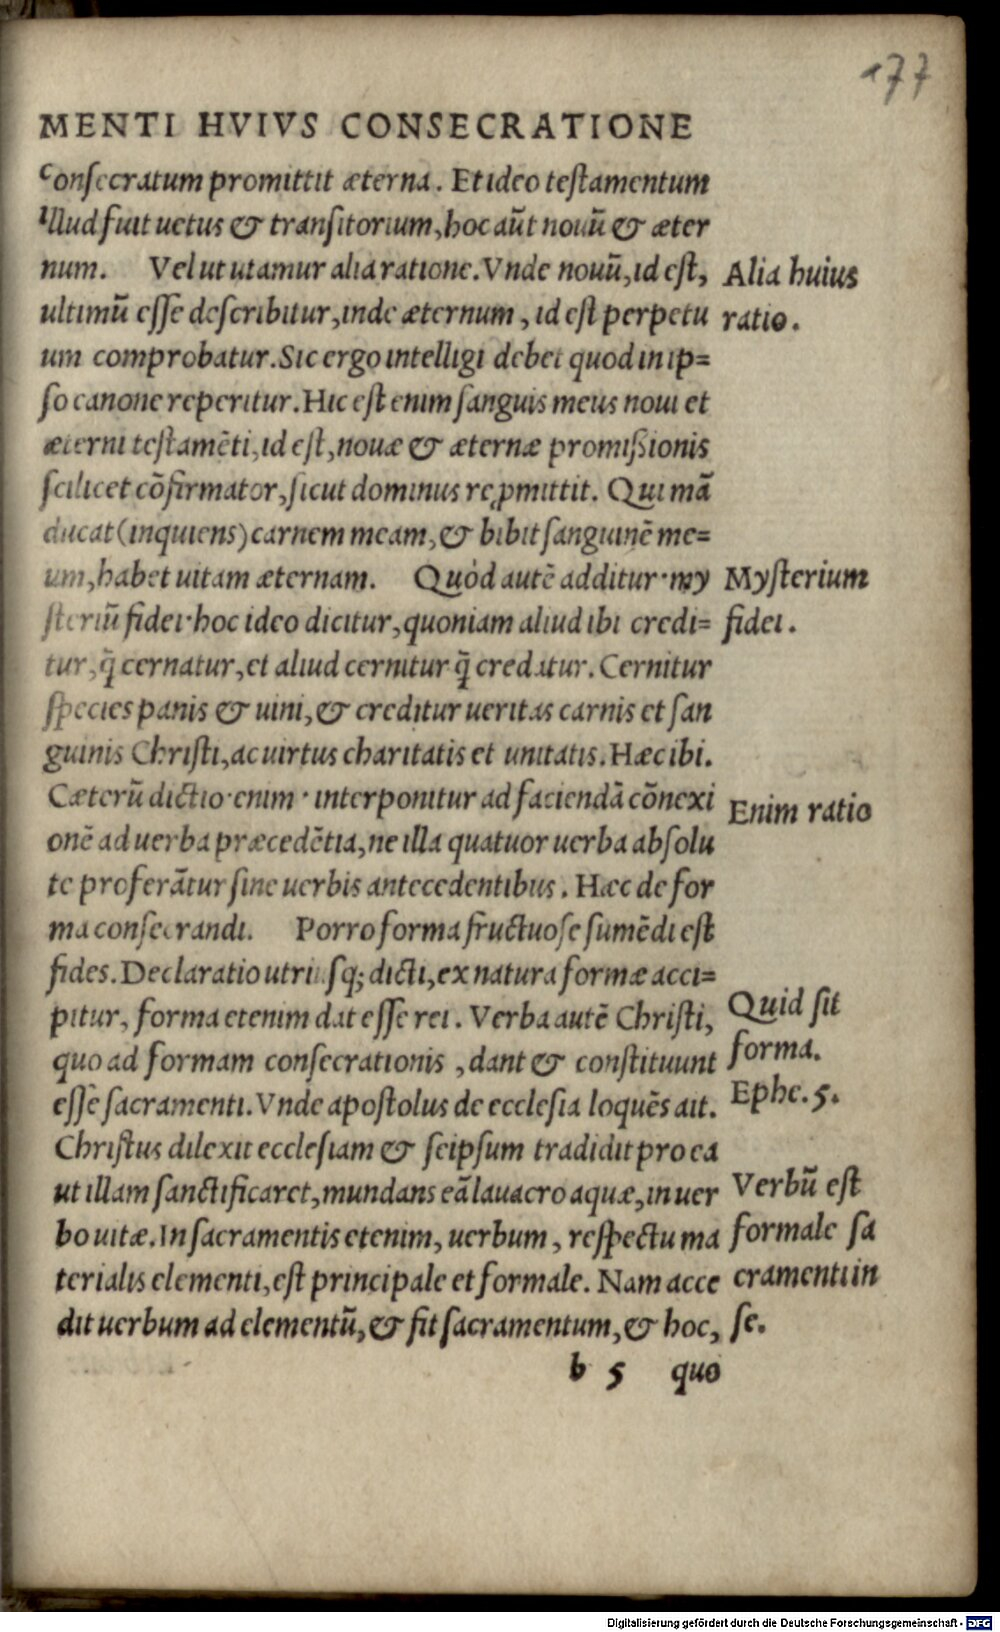 177
MENTI HVIVS CONSECRATIONE
consecratum promittit æterna. Et ideo testamentum
illud fuit uetus & transitorium, hoc aũt nouũ & æter
num. Vel ut utamur alia ratione. Vnde nouũ, id est,
Alia huius
ultimũ esse describitur, inde æternum, id est perpetu
ratio.
um comprobatur. Sic ergo intelligi debet quod in ip=
so canone reperitur. Hic est enim sanguis meus noui et
æterni testamẽti, id est, nouæ & æternæ promißionis
scilicet cõfirmator, sicut dominus repmittit. Qui mã
ducat (inquiens) carnem meam, & bibit sanguinẽ me=
um, habet uitam æternam. Quòd autẽ additur·my
Mysterium
steriũ fidei·hoc ideo dicitur, quoniam aliud ibi credi=
fidei.
tur, q̃ cernatur, et aliud cernitur q̃ creditur. Cernitur
species panis & uini, & creditur ueritas carnis et san
guinis Christi, ac uirtus charitatis et unitatis. Hæc ibi.
Cæterũ dictio·enim·interponitur ad faciendã cõnexi
Enim ratio
onẽ ad uerba præcedẽtia, ne illa quatuor uerba absolu
te proferãtur sine uerbis antecedentibus. Hæc de for
ma consecrandi. Porro forma fructuose sumẽdi est
fides. Declaratio utriusq; dicti, ex natura formæ acci=
Quid sit
pitur, forma etenim dat esse rei. Verba autẽ Christi,
forma.
quo ad formam consecrationis, dant & constituunt
Ephe. 5.
esse sacramenti. Vnde apostolus de ecclesia loquẽs ait.
Christus dilexit ecclesiam & seipsum tradidit pro ea
ut illam sanctificaret, mundans eã lauacro aquæ, in uer
Verbũ est
bo uitæ. In sacramentis etenim, uerbum, respectu ma
formale sa
terialis elementi, est principale et formale. Nam acce
cramenti in
dit uerbum ad elementũ, & fit sacramentum, & hoc,
se.
b 5 quo
Digitalisierung gefördert durch die Deutsche Forschungsgemeinschaft - DFG